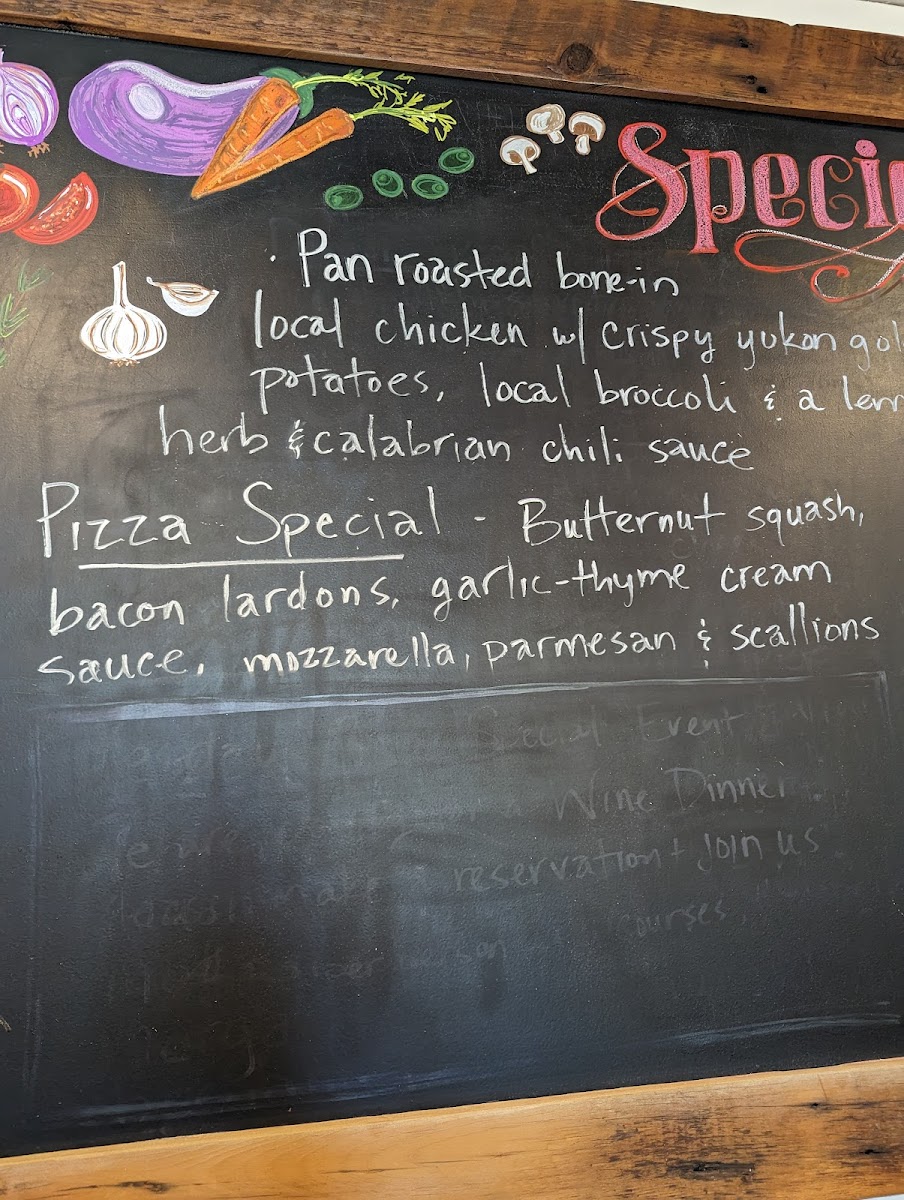 Speci
· Pan roasted bone-in
local chicken w/ crispy yukon gol
potatoes, local broccoli & a lem
herb & calabrian chili sauce
Pizza Special - Butternut squash,
bacon lardons, garlic-thyme cream
sauce, mozzarella, parmesan & scallions
Special Event
Wine Dinner
reservation + Join us
courses,